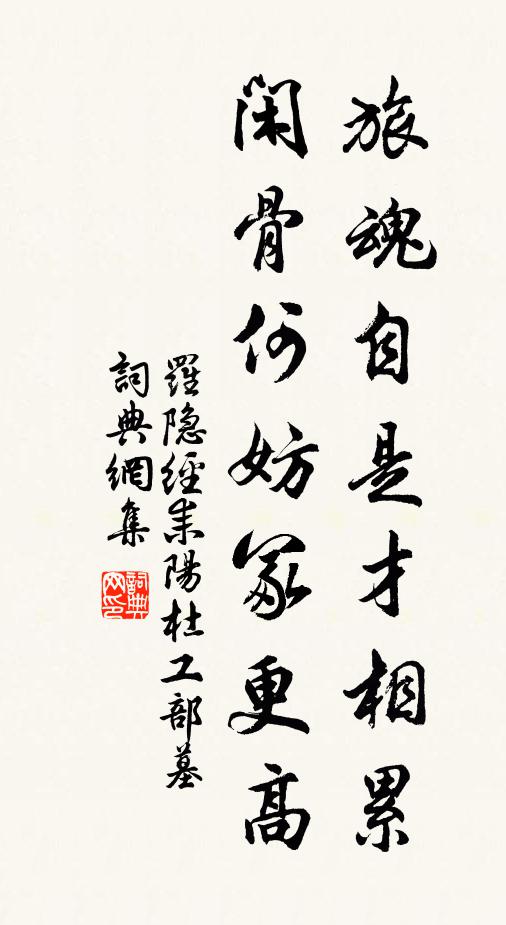 旅魂自是才相累
閑骨何妨冢更高
羅隐經耒陽杜工部墓
詞典網集
詞典網印